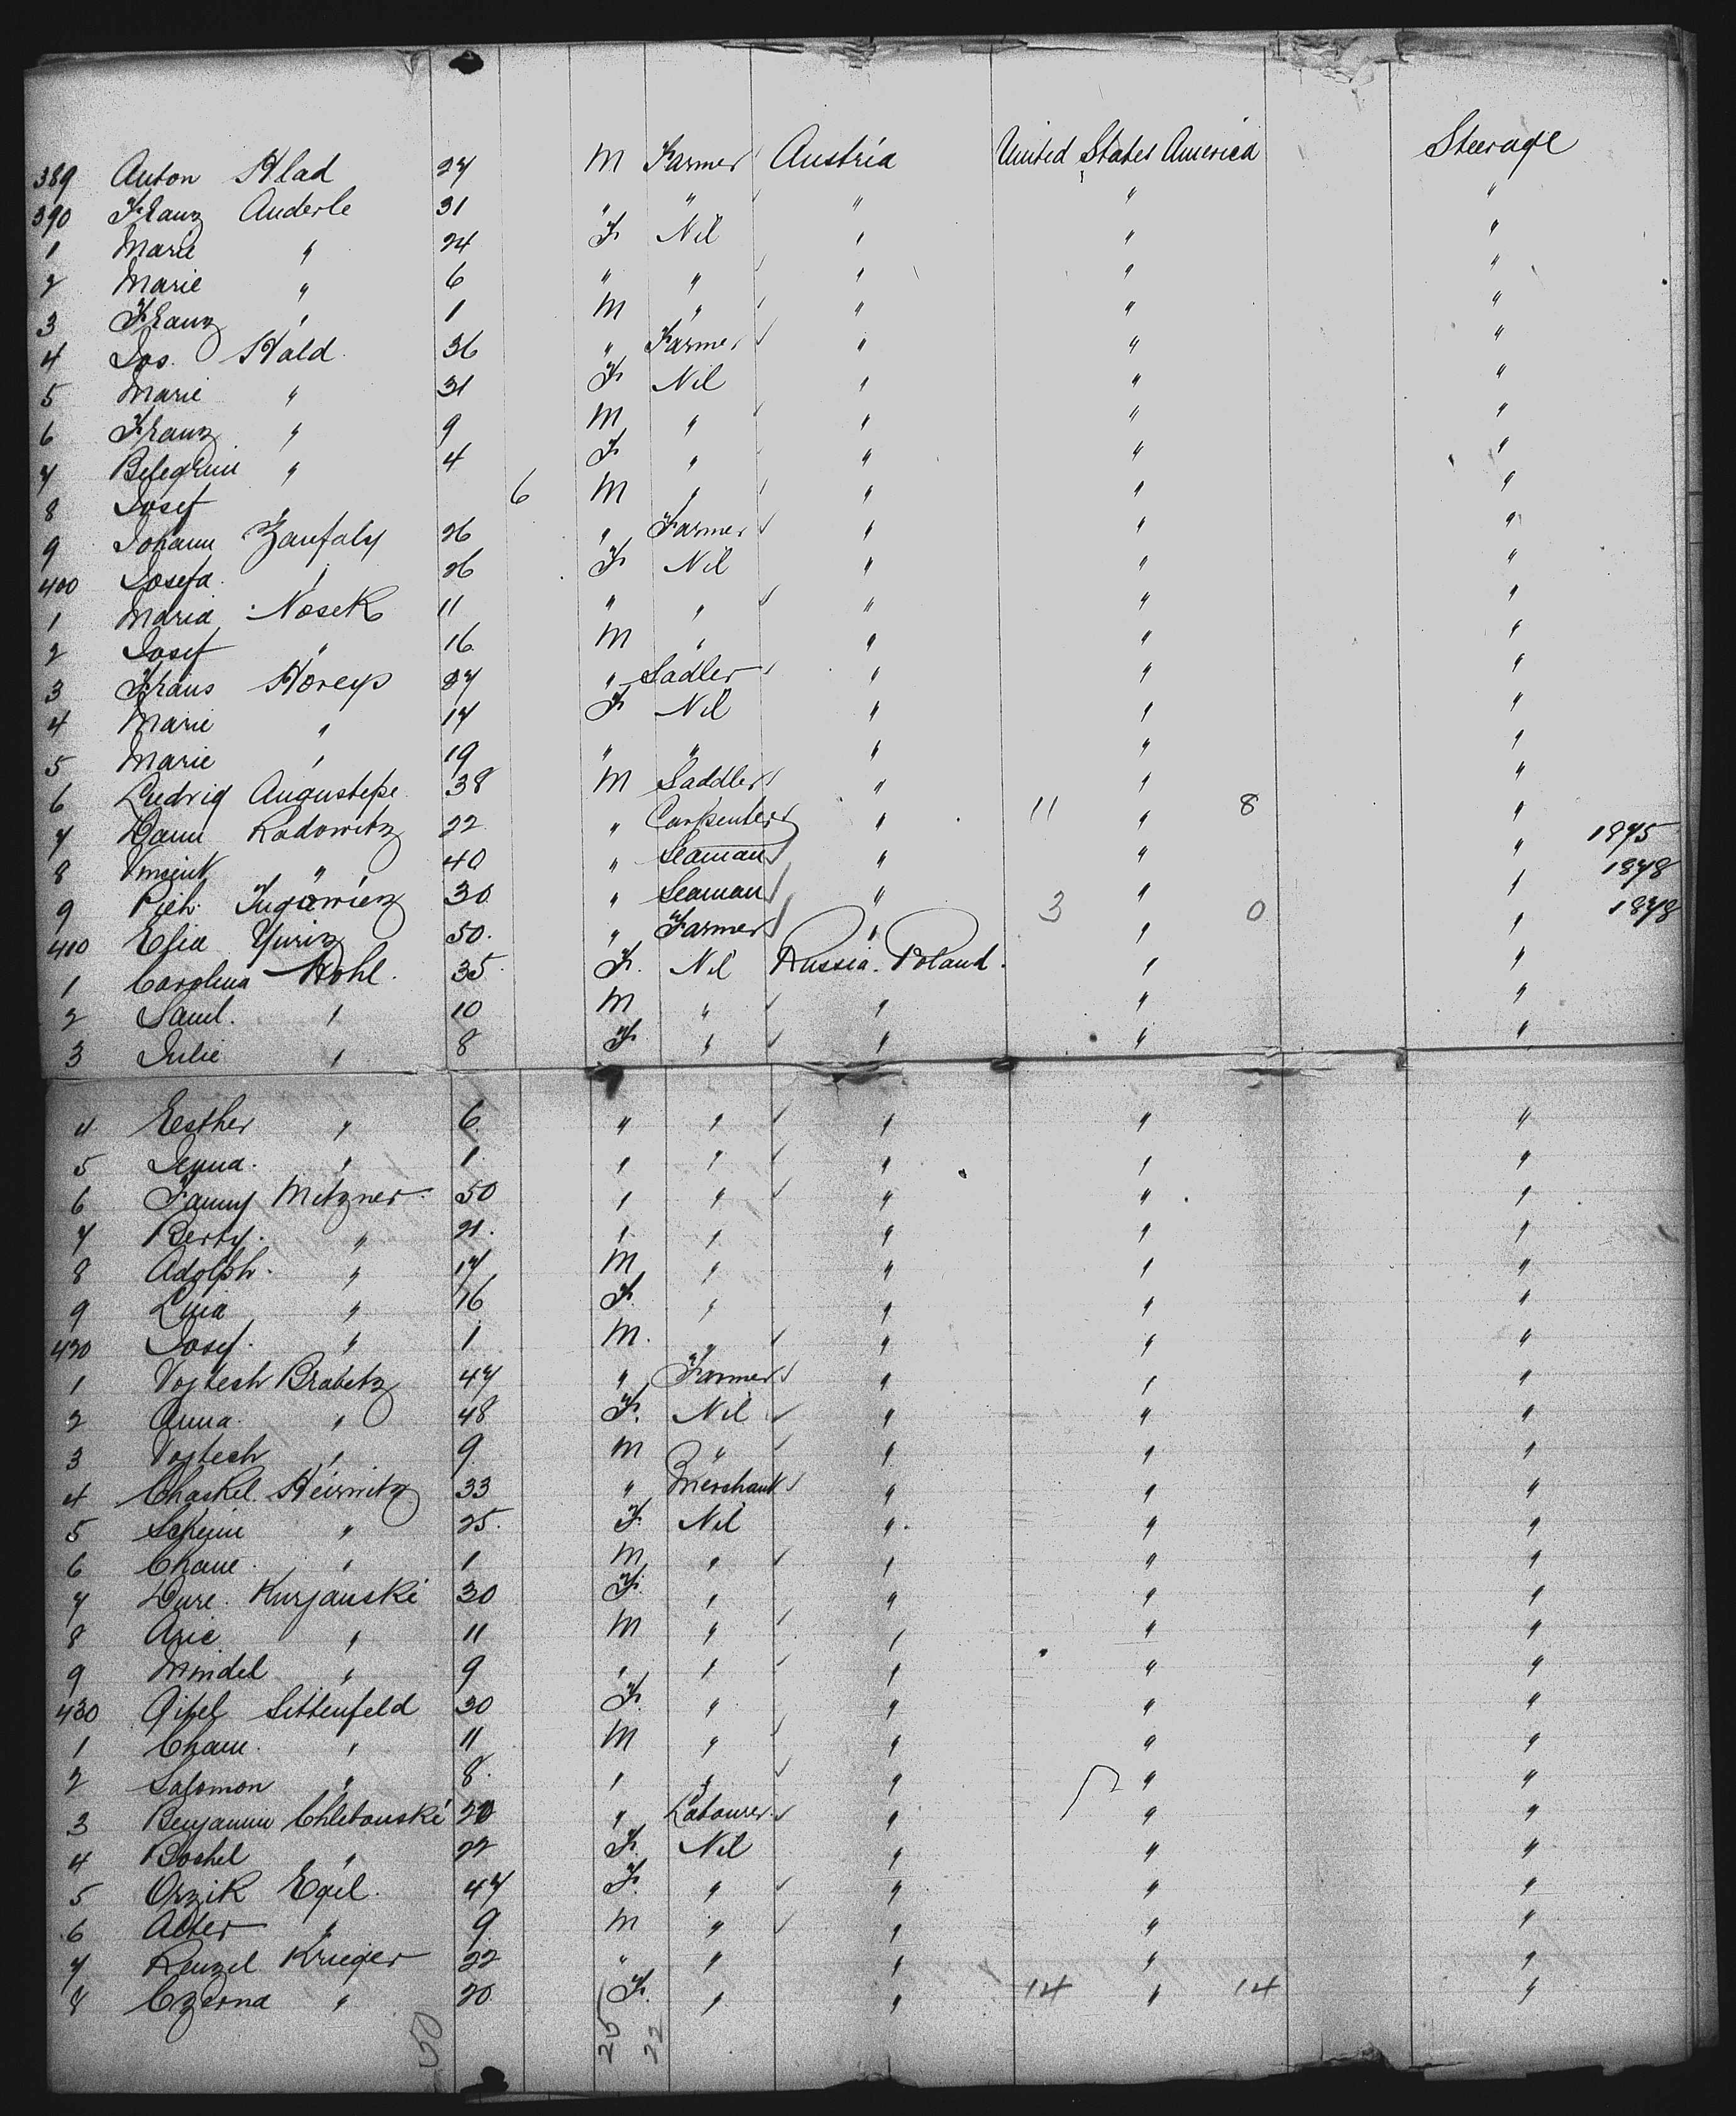 389 Anton Hlad 27 M Farmer Austria United States America Steerage
390 Franz Anderle 31 " " " " "
1 Marie " 24 F Nil " " "
2 Marie " 6 " " " " "
3 Franz " 1 M " " " "
4 Jos. Hald 36 " Farmer " " "
5 Marie " 31 F Nil " " "
6 Franz " 9 M " " " "
7 " 4 F " " " "
8 Josef 6 M " " " "
9 Johann Zaufaly 26 " Farmer " " "
400 Josefa " 26 F Nil " " "
1 Maria Nosek 11 " " " " "
2 Josef " 16 M " " " "
3 Horeys " Sadler " " "
4 Marie " 17 F Nil " " "
5 Marie " 19 " " " " "
6 Ludvig 38 M Saddler " " "
7 Radowitz 22 " Carpenter " 11 " 8 "
8 Vincent " 40 " Seaman " " " 1875
9 30 " Seaman " " " 1878
410 Elia Yuriz 50. " Farmer " 3 " 0 " 1878
1 Carolina Wohl. 35. F. Nil Russia-Poland. " "
2 Saml. " 10 M " " " "
3 Julie " 8 F. " " " "
4 Esther " 6. " " " " "
5 " 1. " " " " "
6 Fanny Metzner 50 " " " " "
7 Berty. " 21. " " " " "
8 Adolph. " 17 M " " " "
9 " 16 F. " " " "
420 Josef. " 1 M. " " " "
1 Vojtech Brabetz 47 " Farmer " " "
2 Anna. " 48 F. Nil " " "
3 Vojtech " 9 M " " " "
4 Chaskel. 33 " Merchant " " "
5 " 25. F. Nil " " "
6 " 1 M " " " "
7 Kurjanski 30 F. " " " "
8 " 11 M " " " "
9 Mindel " 9 " " " " "
430 Gitel Sittenfeld 30 F. " " " "
1 " 11 M " " " "
2 Salomon " 8. " " " " "
3 Benjamin 20 " Labourer. " " "
4 " 22 F. Nil " " "
5 Orzik Egil. 47 F. " " " "
6 " 9 M " " " "
7 Krieger 22 " " " " "
8 Czerna " 20. F. " " 14 " 14 "
50 25 22